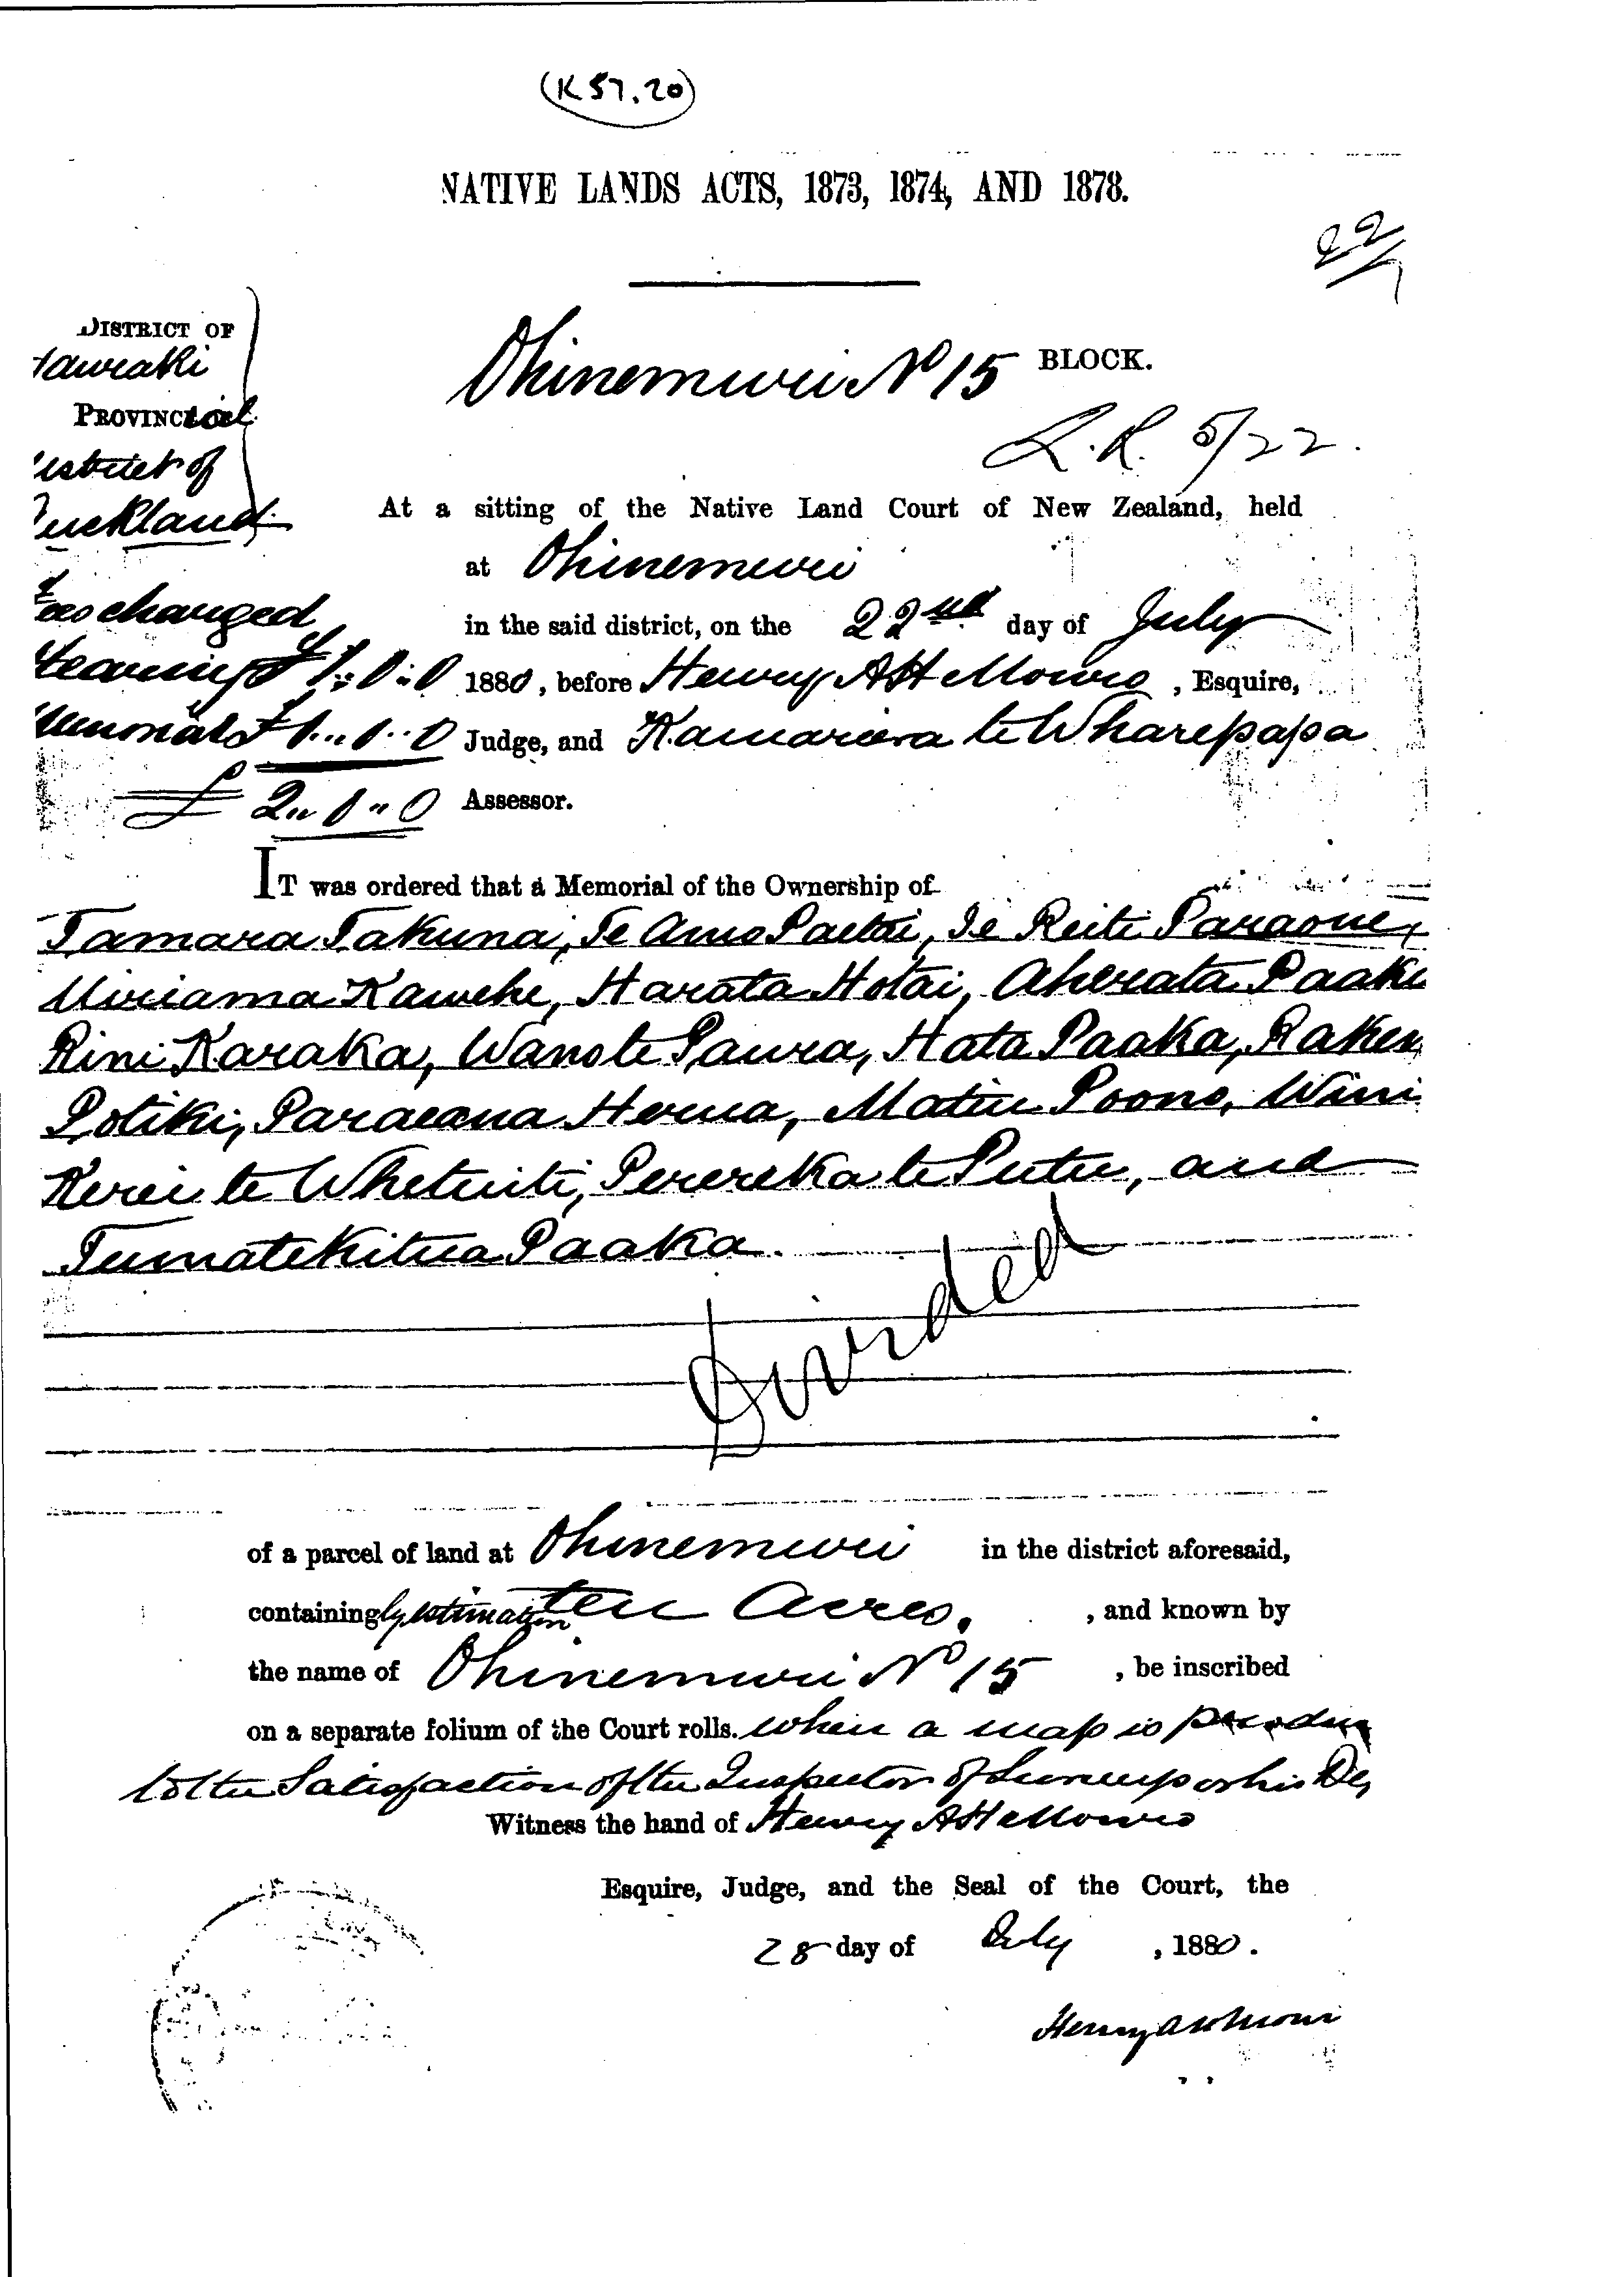 (K 57.20)
NATIVE LANDS ACTS, 1873, 1874, AND 1878.
22/1
DISTRICT OF
Hauraki
PROVINCIal
District of
Auckland
Ohinemuri No 15 BLOCK.
L.R. 5/22.
At a sitting of the Native Land Court of New Zealand, held
at Ohinemuri
in the said district, on the 22nd day of July
1880, before Henry A H Monro, Esquire,
Judge, and Kamariera te Wharepapa
Assessor.
Fees charged
Hearing £1:0:0
Memorial £1..0..0
£2..0..0
IT was ordered that a Memorial of the Ownership of
Tamara Takuna, Te Amo Paetai, Te Reiti Paraone,
Miriama Kawehe, Harata Hotai, Aherata Paaka
Rini Karaka, Wano te Paura, Hata Paaka, Raken
Potiki, Paraeana Herua, Matiu Poono, Wini
Kerei te Whetuiti, Perereka te Putu, and
Tumatekitua Paaka.
Divided
of a parcel of land at Ohinemuri in the district aforesaid,
containing by estimation ten Acres. , and known by
the name of Ohinemuri No 15 , be inscribed
on a separate folium of the Court rolls. when a map is produ
to the Satisfaction of the Inspector of Surveys or his De
Witness the hand of Henry A H Monro
Esquire, Judge, and the Seal of the Court, the
28 day of July , 1880.
Henry A H Monro